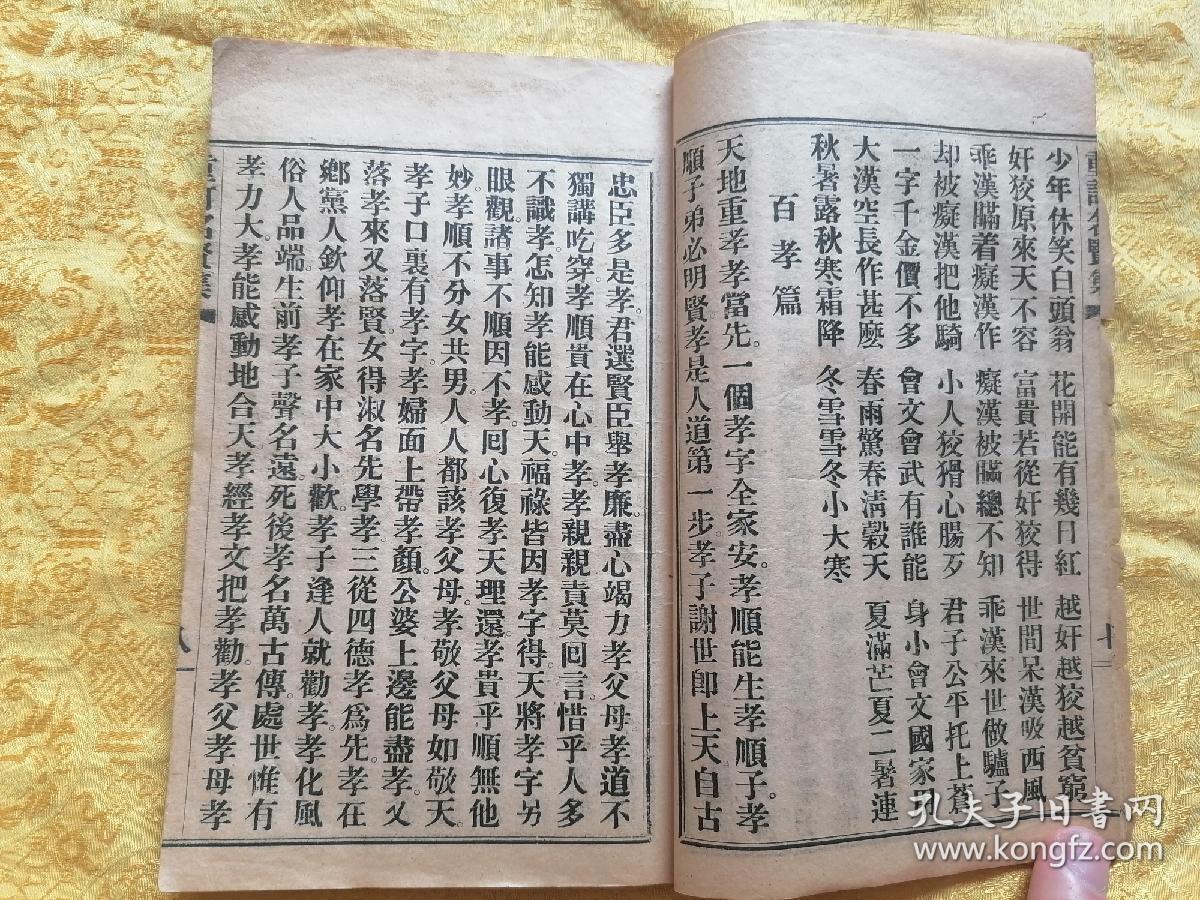 重訂名賢集 十
少年休笑白頭翁 花開能有幾日紅 越奸越狡越貧窮
奸狡原來天不容 富貴若從奸狡得 世間呆漢吸西風
乖漢瞞着癡漢作 癡漢被瞞總不知 乖漢來世做驢子
却被癡漢把他騎 小人狡猾心腸歹 君子公平托上蒼
一字千金價不多 會文會武有誰能 身小會文國家
大漢空長作甚麽 春雨驚春清穀天 夏滿芒夏二暑連
秋暑露秋寒霜降 冬雪雪冬小大寒
百孝篇
天地重孝孝當先。一個孝字全家安。孝順能生孝順子。孝
順子弟必明賢。孝是人道第一步。孝子謝世即上天。自古
忠臣多是孝。君選賢臣舉孝廉。盡心竭力孝父母。孝道不
獨講吃穿。孝順貴在心中孝。孝親親責莫回言。惜乎人多
不識孝。怎知孝能感動天。福祿皆因孝字得。天將孝字另
眼觀。諸事不順因不孝。回心復孝天理還。孝貴乎順無他
妙。孝順不分女共男。人人都該孝父母。孝敬父母如敬天。
孝子口裏有孝字。孝婦面上帶孝顏。公婆上邊能盡孝。又
落孝來又落賢。女得淑名先學孝。三從四德孝爲先。孝在
鄉黨人欽仰。孝在家中大小歡。孝子逢人就勸孝。孝化風
俗人品端。生前孝子聲名遠。死後孝名萬古傳。處世惟有
孝力大。孝能感動地合天。孝經孝文把孝勸。孝父孝母孝
重訂名賢集 八
孔夫子旧書网
www.kongfz.com